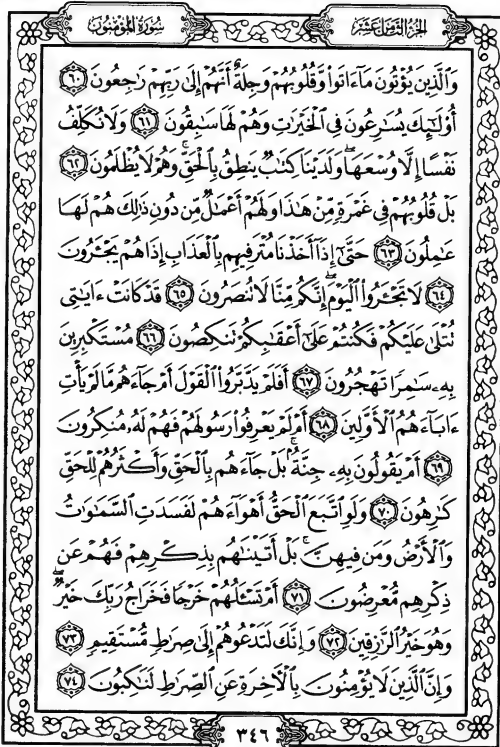 الجزء الثامن عشر سورة المؤمنون
وَٱلَّذِينَ يُؤْتُونَ مَآ ءَاتَوا۟ وَّقُلُوبُهُمْ وَجِلَةٌ أَنَّهُمْ إِلَىٰ رَبِّهِمْ رَٰجِعُونَ ٦٠
أُو۟لَٰٓئِكَ يُسَٰرِعُونَ فِى ٱلْخَيْرَٰتِ وَهُمْ لَهَا سَٰبِقُونَ ٦١ وَلَا نُكَلِّفُ
نَفْسًا إِلَّا وُسْعَهَا ۖ وَلَدَيْنَا كِتَٰبٌ يَنطِقُ بِٱلْحَقِّ ۚ وَهُمْ لَا يُظْلَمُونَ ٦٢
بَلْ قُلُوبُهُمْ فِى غَمْرَةٍ مِّنْ هَٰذَا وَلَهُمْ أَعْمَٰلٌ مِّن دُونِ ذَٰلِكَ هُمْ لَهَا
عَٰمِلُونَ ٦٣ حَتَّىٰٓ إِذَآ أَخَذْنَا مُتْرَفِيهِم بِٱلْعَذَابِ إِذَا هُمْ يَجْـَٔرُونَ
٦٤ لَا تَجْـَٔرُوا۟ ٱلْيَوْمَ ۖ إِنَّكُم مِّنَّا لَا تُنصَرُونَ ٦٥ قَدْ كَانَتْ ءَايَٰتِى
تُتْلَىٰ عَلَيْكُمْ فَكُنتُمْ عَلَىٰٓ أَعْقَٰبِكُمْ تَنكِصُونَ ٦٦ مُسْتَكْبِرِينَ
بِهِۦ سَٰمِرًا تَهْجُرُونَ ٦٧ أَفَلَمْ يَدَّبَّرُوا۟ ٱلْقَوْلَ أَمْ جَآءَهُم مَّا لَمْ يَأْتِ
ءَابَآءَهُمُ ٱلْأَوَّلِينَ ٦٨ أَمْ لَمْ يَعْرِفُوا۟ رَسُولَهُمْ فَهُمْ لَهُۥ مُنكِرُونَ
٦٩ أَمْ يَقُولُونَ بِهِۦ جِنَّةٌۢ ۚ بَلْ جَآءَهُم بِٱلْحَقِّ وَأَكْثَرُهُمْ لِلْحَقِّ
كَٰرِهُونَ ٧٠ وَلَوِ ٱتَّبَعَ ٱلْحَقُّ أَهْوَآءَهُمْ لَفَسَدَتِ ٱلسَّمَٰوَٰتُ
وَٱلْأَرْضُ وَمَن فِيهِنَّ ۚ بَلْ أَتَيْنَٰهُم بِذِكْرِهِمْ فَهُمْ عَن
ذِكْرِهِم مُّعْرِضُونَ ٧١ أَمْ تَسْـَٔلُهُمْ خَرْجًا فَخَرَاجُ رَبِّكَ خَيْرٌ ۖ
وَهُوَ خَيْرُ ٱلرَّٰزِقِينَ ٧٢ وَإِنَّكَ لَتَدْعُوهُمْ إِلَىٰ صِرَٰطٍ مُّسْتَقِيمٍ ٧٣
وَإِنَّ ٱلَّذِينَ لَا يُؤْمِنُونَ بِٱلْءَاخِرَةِ عَنِ ٱلصِّرَٰطِ لَنَٰكِبُونَ ٧٤
٣٤٦